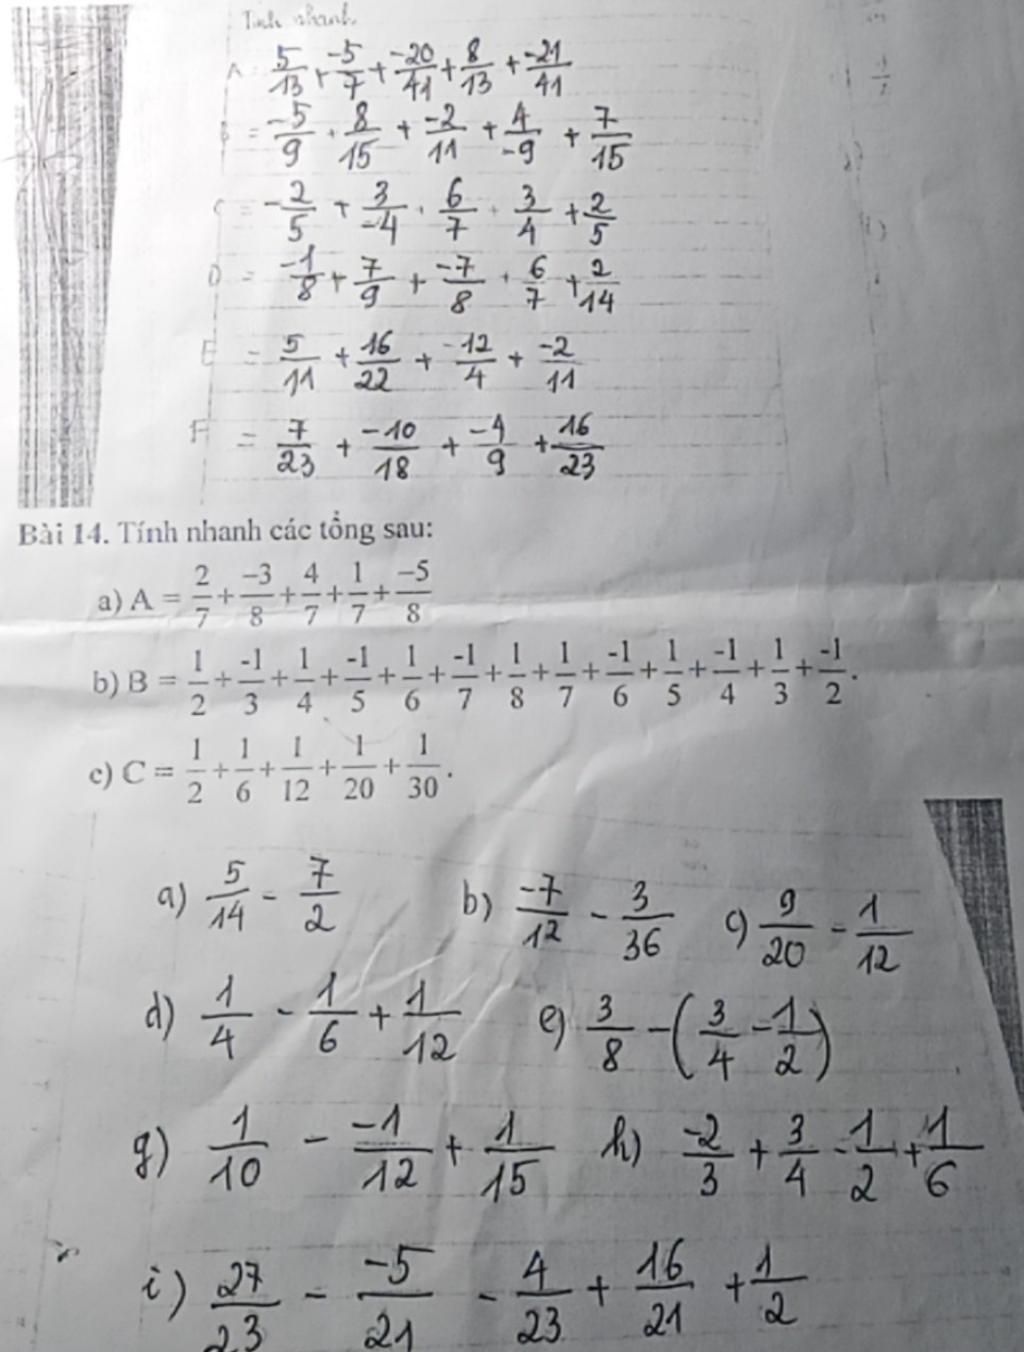 Tính nhanh
A = 5/13 + -5/7 + -20/41 + 8/13 + -21/41
B = -5/9 + 8/15 + -2/11 + 4/-9 + 7/15
C = -2/5 + 3/-4 + 6/7 + 3/4 + 2/5
D = -1/8 + 7/9 + -7/8 + 6/7 + 2/14
E = 5/11 + 16/22 + -12/4 + -2/11
F = 7/23 + -10/18 + -4/9 + 16/23
Bài 14. Tính nhanh các tổng sau:
a) A = 2/7 + -3/8 + 4/7 + 1/7 + -5/8
b) B = 1/2 + -1/3 + 1/4 + -1/5 + 1/6 + -1/7 + 1/8 + 1/7 + -1/6 + 1/5 + -1/4 + 1/3 + -1/2.
c) C = 1/2 + 1/6 + 1/12 + 1/20 + 1/30.
a) 5/14 - 7/2 b) -7/12 - 3/36 c) 9/20 - 1/12
d) 1/4 - 1/6 + 1/12 e) 3/8 - (3/4 - 1/2)
g) 1/10 - -1/12 + 1/15 h) -2/3 + 3/4 - 1/2 + 1/6
i) 27/23 - -5/21 - 4/23 + 16/21 + 1/2